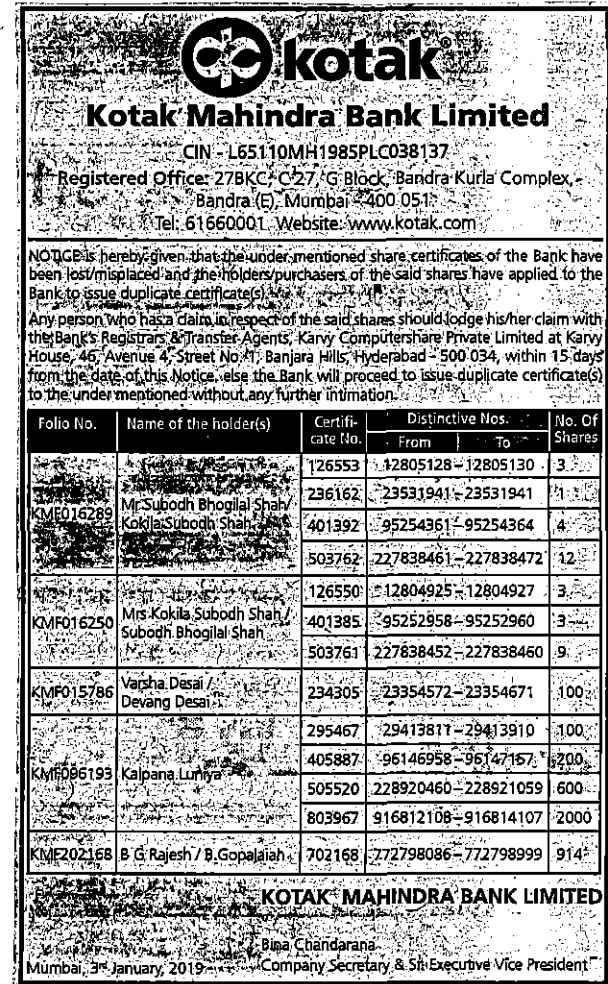 kotak
Kotak Mahindra Bank Limited
CIN - L65110MH1985PLC038137
Registered Office: 27BKC, C 27, G Block, Bandra Kurla Complex,
Bandra (E), Mumbai - 400 051
Tel: 61660001 Website: www.kotak.com
NOTICE is hereby given that the under mentioned share certificates of the Bank have
been lost/misplaced and the holders/purchasers of the said shares have applied to the
Bank to issue duplicate certificate(s).
Any person who has a claim in respect of the said shares should lodge his/her claim with
the Bank's Registrars & Transfer Agents, Karvy Computershare Private Limited at Karvy
House, 46, Avenue 4, Street No. 1, Banjara Hills, Hyderabad - 500 034, within 15 days
from the date of this Notice, else the Bank will proceed to issue duplicate certificate(s)
to the under mentioned without any further intimation.
Folio No. Name of the holder(s) Certifi- Distinctive Nos. No. Of
cate No. From To Shares
126553 12805128 – 12805130 3
236162 23531941 – 23531941 1
KMF016289 Mr Subodh Bhogilal Shah /
Kokila Subodh Shah
401392 95254361 – 95254364 4
503762 227838461 – 227838472 12
126550 12804925 – 12804927 3
KMF016250 Mrs Kokila Subodh Shah / 401385 95252958 – 95252960 3
Subodh Bhogilal Shah
503761 227838452 – 227838460 9
KMF015786 Varsha Desai / 234305 23354572 – 23354671 100
Devang Desai
295467 29413811 – 29413910 100
405887 96146958 – 96147157 200
KMF096193 Kalpana Luniya
505520 228920460 – 228921059 600
803967 916812108 – 916814107 2000
KMF202168 B G Rajesh / B Gopalaiah 702168 772798086 – 772798999 914
KOTAK MAHINDRA BANK LIMITED
Bina Chandarana
Mumbai, 3rd January, 2019 Company Secretary & Sr. Executive Vice President